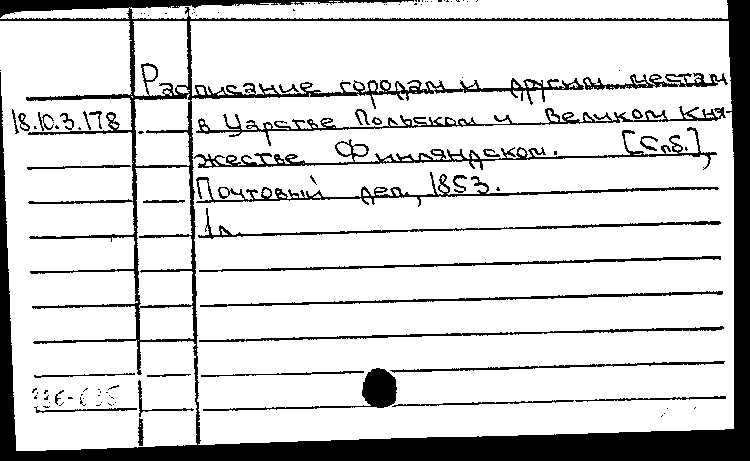 Расписание городам и другим местам
18.10.3.178
в Царстве Польском и Великом Кня-
жестве Финляндском. [Спб.],
Почтовый деп., 1853.
1 л.